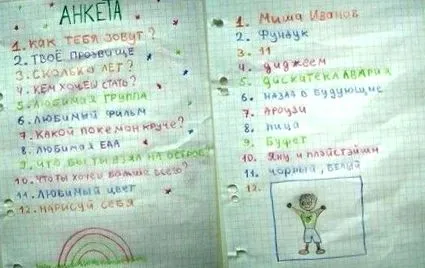 АНКЕТА
1. КАК ТЕБЯ ЗОВУТ?
2. ТВОЁ ПРОЗВИЩЕ
3. СКОЛЬКО ЛЕТ?
4. КЕМ ХОЧЕШ СТАТЬ?
5. ЛЮБИМАЯ ГРУППА
6. ЛЮБИМЫЙ ФИЛЬМ
7. КАКОЙ ПОКЕМОН КРУЧЕ?
8. ЛЮБИМАЯ ЕДА
9. ЧТО БЫ ТЫ ВЗЯЛ НА ОСТРОВ?
10. ЧТО ТЫ ХОЧЕШ БОЛЬШЕ ВСЕГО?
11. ЛЮБИМЫЙ ЦВЕТ
12. НАРИСУЙ СЕБЯ
1. Миша Иванов
2. Фундук
3. 11
4. диджеем
5. ДИСКАТЕКА АВАРИЯ
6. НАЗАД В БУДУЮЩИЕ
7. АРОУЗИ
8. ПИЦА
9. БУФЕТ
10. Яну и плэйстэйшн
11. ЧОРНЫЙ, БЕЛЫЙ
12.